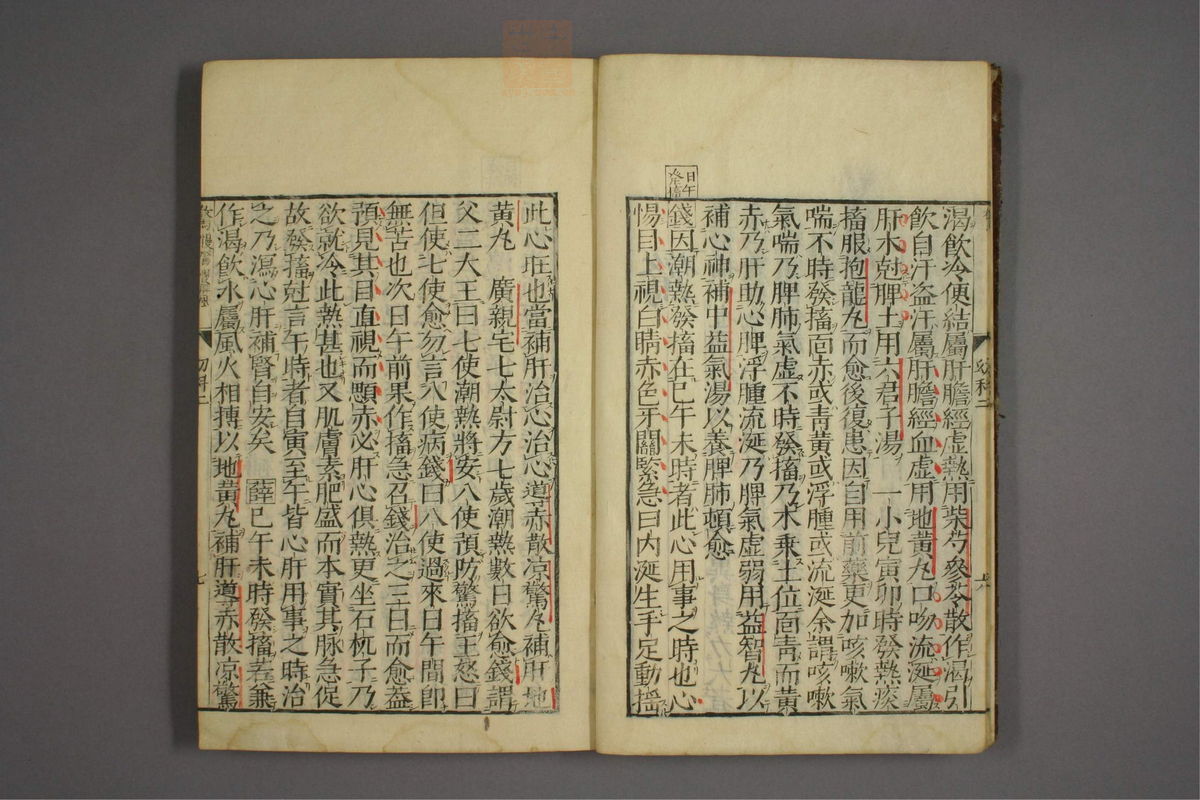 渴飲冷便結屬肝膽經虛熱用柴芍參苓散作渴引
飲自汗盗汗屬肝膽經血虛用地黄丸口吻流涎屬
肝木尅脾土用六君子湯 一小兒寅卯時發熱痰
搐服抱龍丸而愈後復患因自用前藥更加咳嗽氣
喘不時發搐面赤或青黄或浮腫或流涎余謂咳嗽
氣喘乃脾肺氣虛不時發搐乃木乘土位面青而黄
赤乃肝助心脾浮腫流涎乃脾氣虛弱用益智丸以
補心神補中益氣湯以養脾肺頓愈
日午
發搐
錢因潮熱發搐在巳午未時者此心用事之時也心
惕目上視白睛赤色牙關緊急口内涎生手足動揺
幼科二
六
此心旺也當補肝治心治心導赤散凉驚丸補肝地
黄丸 廣親宅七太尉方七歲潮熱數日欲愈錢謂
父二大王曰七使潮熱將安八使預防驚搐王怒曰
但使七使愈勿言八使病錢曰八使過來日午間即
無苦也次日午前果作搐急召錢治之三日而愈蓋
預見其目直視而顋赤必肝心俱熱更坐石杌子乃
欲就冷此熱甚也又肌膚素肥盛而本實其脉急促
故發搐尅言午時者自寅至午皆心肝用事之時治
之乃瀉心肝補腎自安矣 薛巳午未時發搐若兼
作渴飲水屬風火相搏以地黄丸補肝導赤散凉驚
幼科二
七